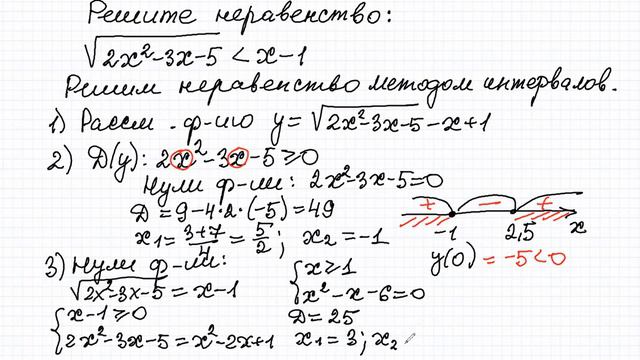 Решите неравенство:
√2x²-3x-5 < x-1
Решим неравенство методом интервалов.
1) Рассм. ф-ию y=√2x²-3x-5-x+1
2) D(y): 2x²-3x-5≥0
Нули ф-ии: 2x²-3x-5=0
D=9-4·2·(-5)=49
x₁=3+7/4=5/2; x₂=-1
+ - +
-1 2,5 x
y(0)=-5<0
3) Нули ф-ии:
√2x²-3x-5=x-1
{x-1≥0
2x²-3x-5=x²-2x+1
{x≥1
x²-x-6=0
D=25
x₁=3; x₂